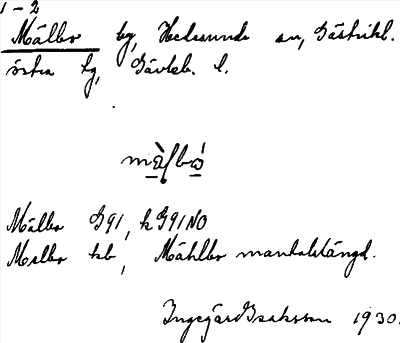 1-2
Mällbo by, Hedesunda sn, Gästrikl.
östra tg, Gävleb. l.
Mällbo G91, k G91 NO
Mellbo kb, Mählbo mantalslängd.
Ingegärd Isaksson 1930.